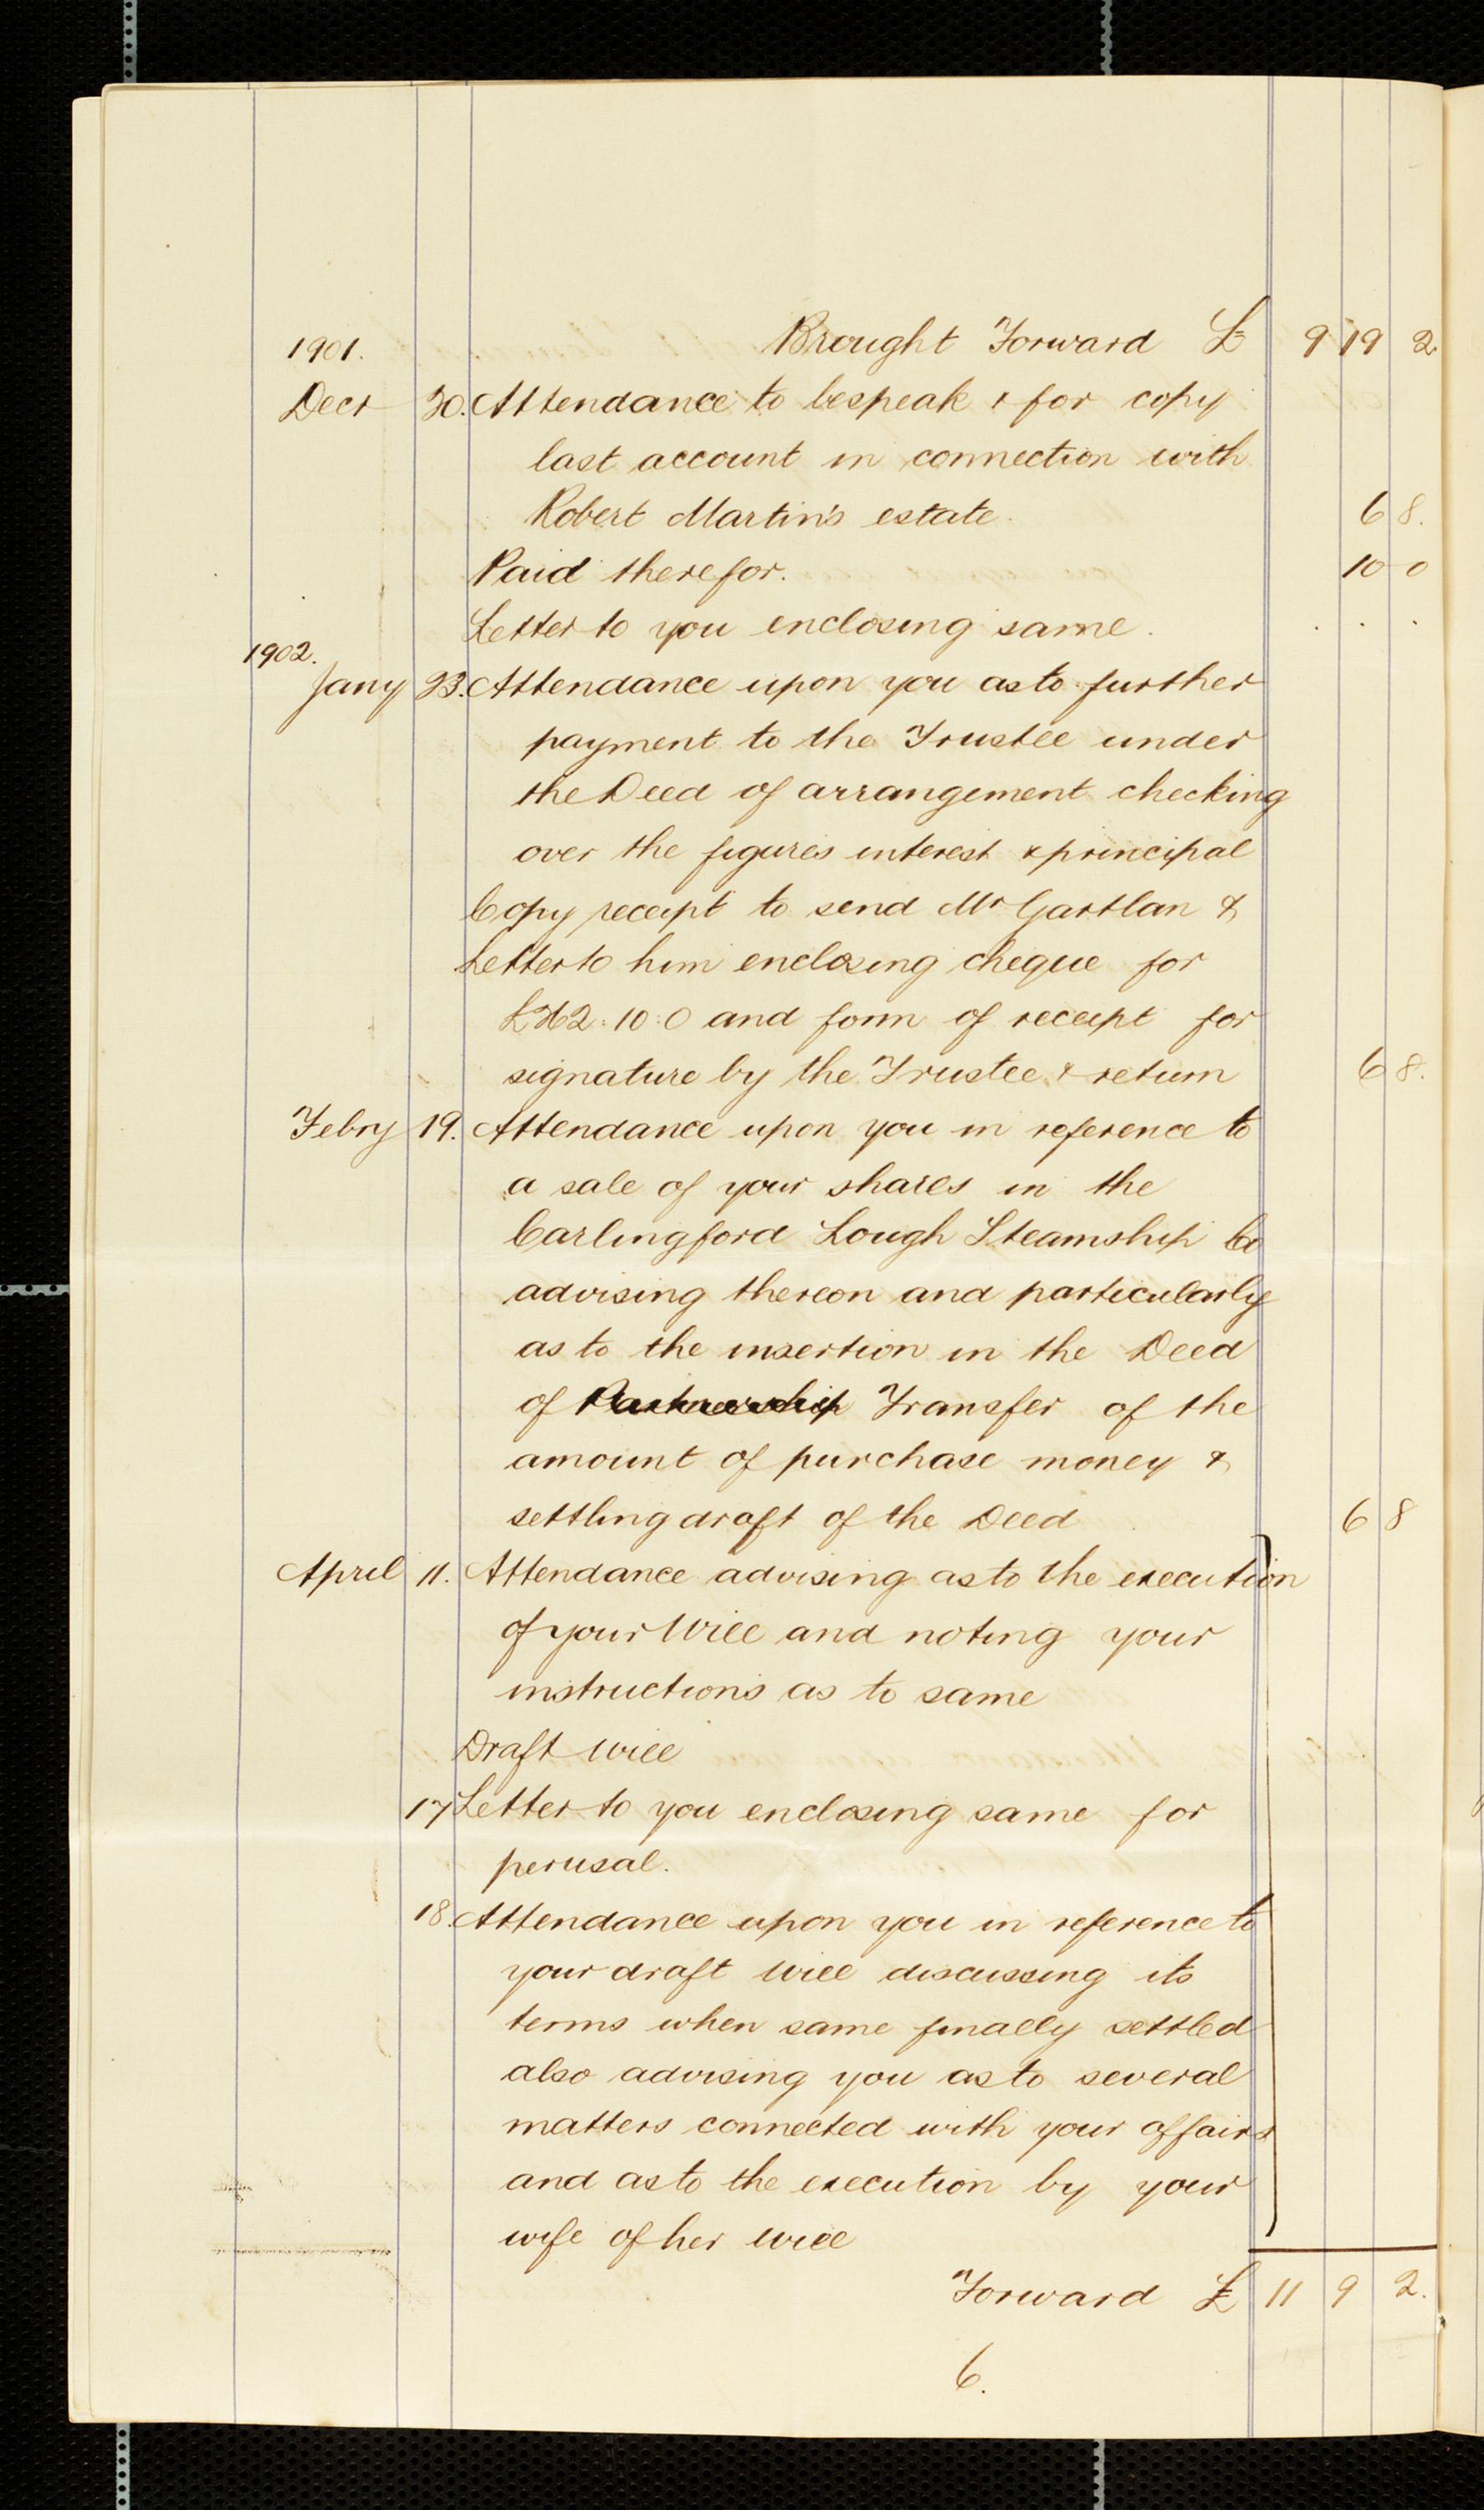 1901. Brought Forward £ 9 19 2
Decr 30. Attendance to bespeak & for copy
last account in connection with
Robert Martin's estate. 6 8.
Paid therefor. 10 0
Letter to you enclosing same . . . .
1902.
Jany 23. Attendance upon you as to further
payment to the Trustee under
the Deed of arrangement checking
over the figures interest & principal
Copy receipt to send Mr Gartlan &
Letter to him enclosing cheque for
10:0 and form of receipt for
signature by the Trustee & return 6 8.
Febry 19. Attendance upon you in reference to
a sale of your shares in the
Carlingford Lough Steamship Co
advising thereon and particularly
as to the insertion in the Deed
of Partnership Transfer of the
amount of purchase money &
settling draft of the Deed 6 8
April 11. Attendance advising as to the execution
of your Will and noting your
instructions as to same
Draft Will
17 Letter to you enclosing same for
perusal.
18. Attendance upon you in reference to
your draft Will discussing its
terms when same finally settled
also advising you as to several
matters connected with your affairs
and as to the execution by your
wife of her Will
Forward £ 11 9 2.
6.